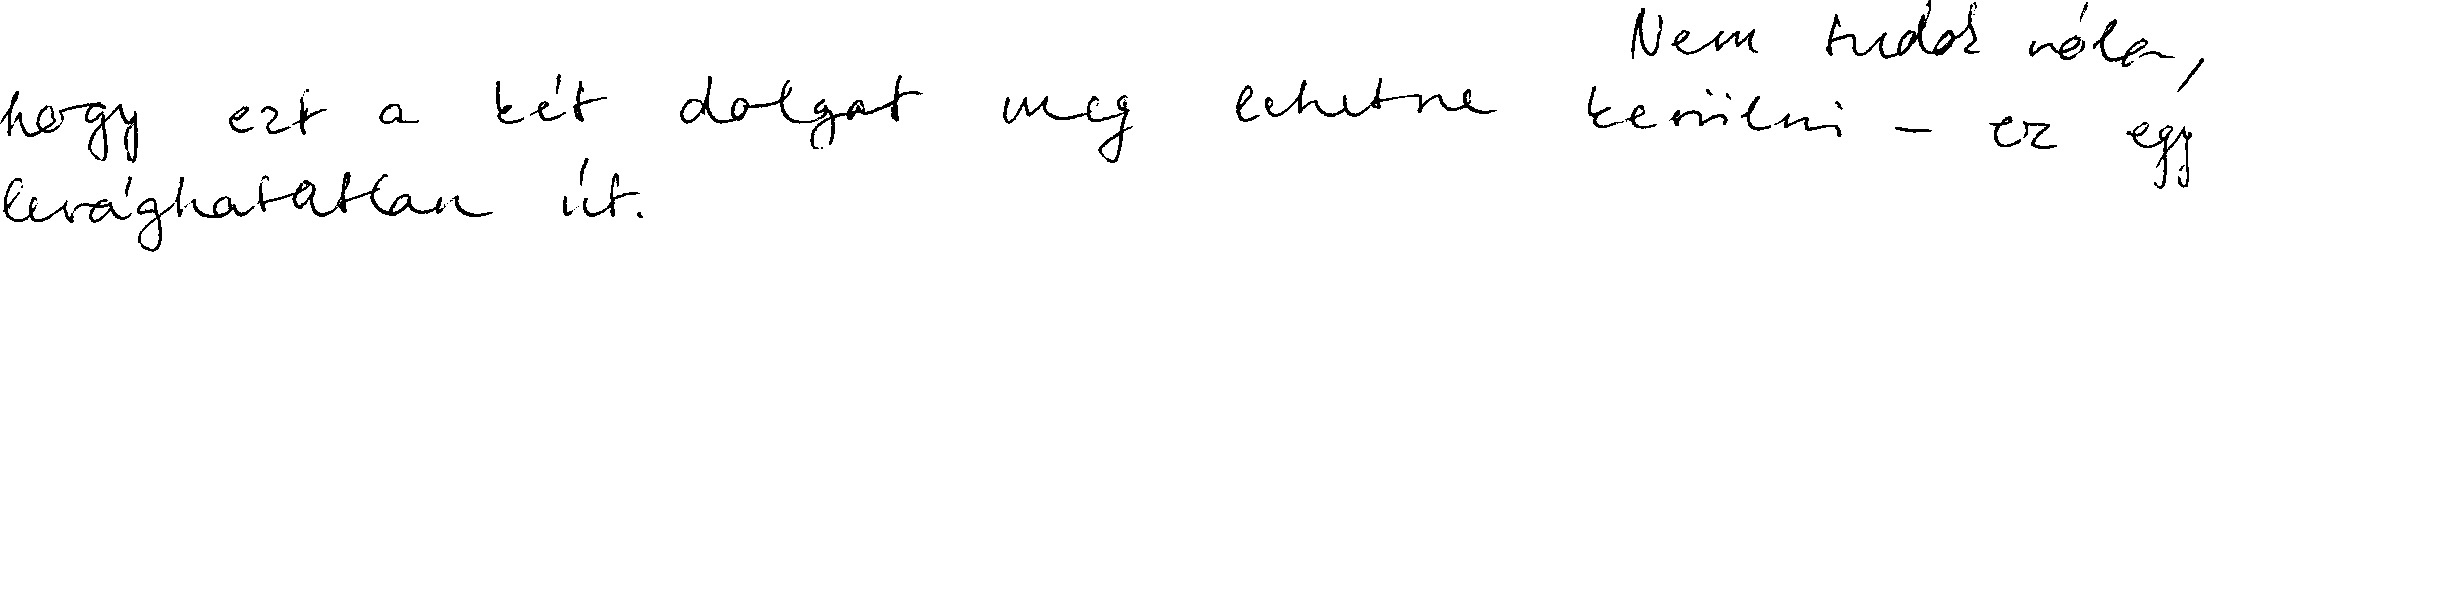 Nem tudok róla,
hogy ezt a két dolgot meg lehetne kerülni – ez egy
levághatatlan út.